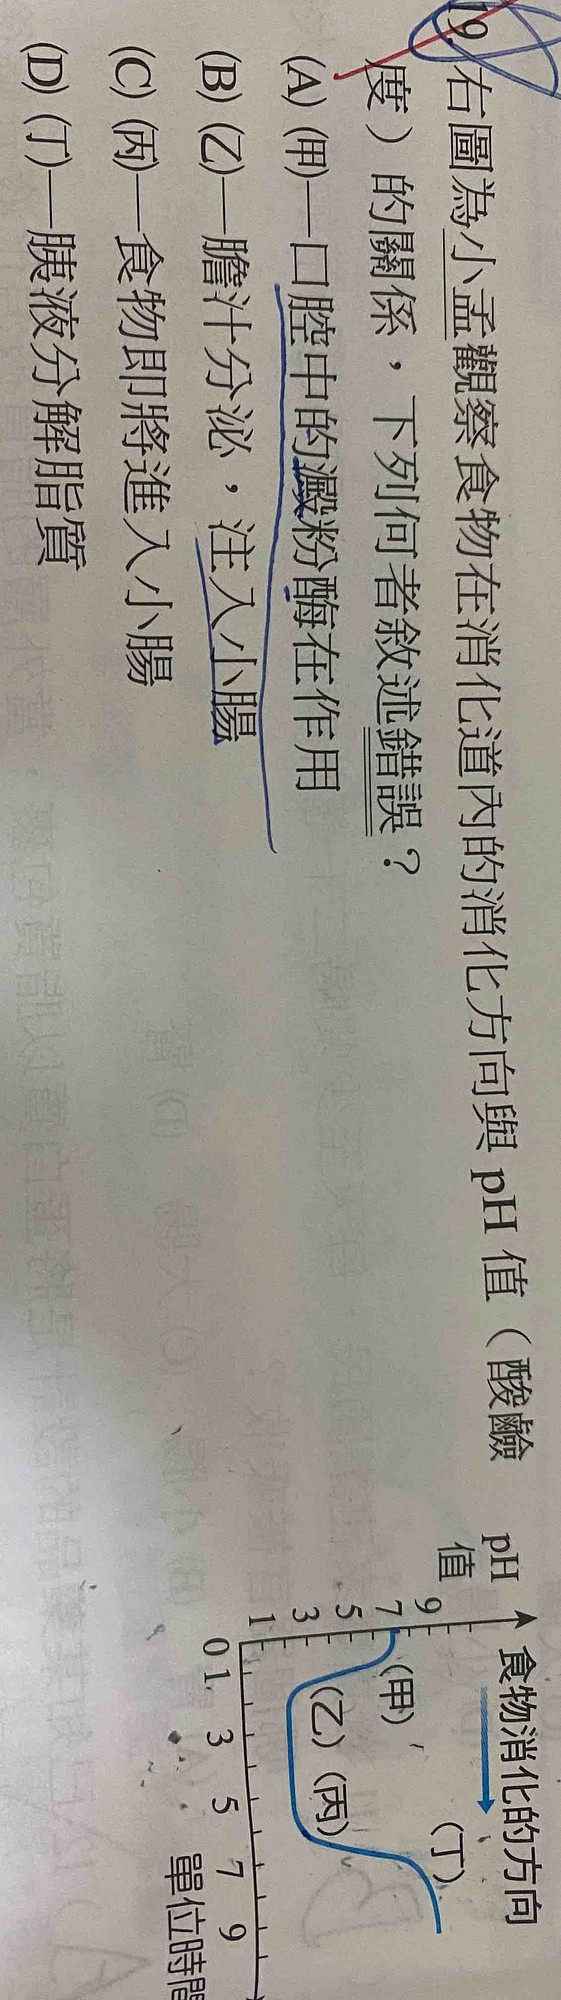 19. 右圖為小孟觀察食物在消化道內的消化方向與 pH 值（酸鹼
度）的關係，下列何者敘述錯誤？
(A) (甲)—口腔中的澱粉酶在作用
(B) (乙)—膽汁分泌，注入小腸
(C) (丙)—食物即將進入小腸
(D) (丁)—胰液分解脂質
食物消化的方向
pH
值
9
7
5
3
1
(甲)
(乙)
(丙)
(丁)
0 1 3 5 7 9
單位時間